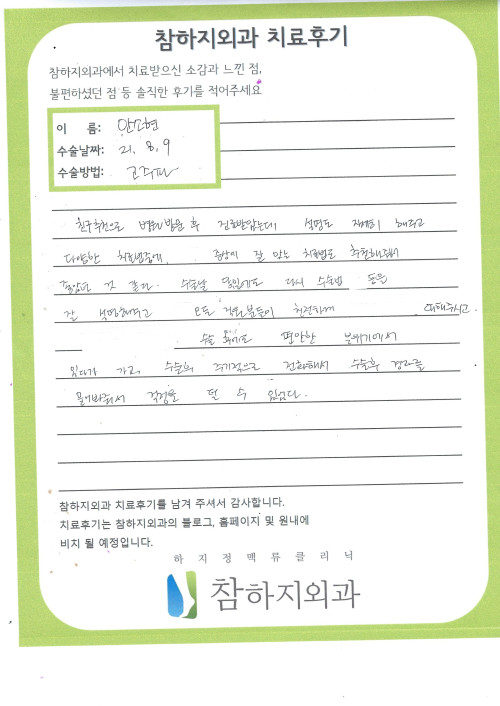 참하지외과 치료후기
참하지외과에서 치료받으신 소감과 느낀 점,
불편하셨던 점 등 솔직한 후기를 적어주세요
이 름: 안소현
수술날짜: 21. 8. 9
수술방법: 고주파
친구추천으로 병원 방문 후 진료받았는데 설명도 자세히 해주고
다양한 치료법중에 증상에 잘 맞는 치료법도 추천해줘서
좋았던 것 같다. 수술날 당일에도 다시 수술법 등을
잘 설명해주고 모든 직원분들이 친절하게 대해주시고
수술 후에도 편안한 분위기에서
있다가 가고, 수술후 주기적으로 전화해서 수술후 경과를
물어봐줘서 걱정을 덜 수 있었다.
참하지외과 치료후기를 남겨 주셔서 감사합니다.
치료후기는 참하지외과의 블로그, 홈페이지 및 원내에
비치 될 예정입니다.
하지정맥류클리닉
참하지외과